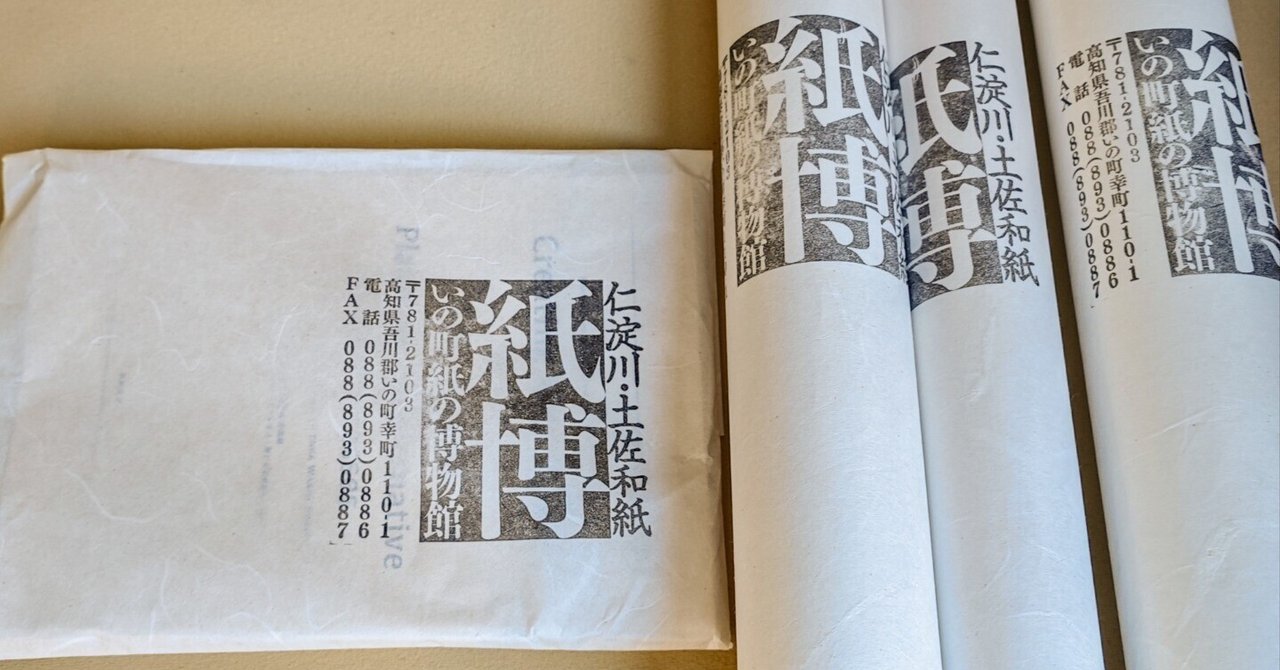 仁淀川・土佐和紙
紙博
いの町紙の博物館
〒781-2103
高知県吾川郡いの町幸町110-1
電話 088(893)0886
FAX 088(893)0887
紙博
いの町紙の博物館
仁淀川・土佐和紙
紙博
紙博
いの町紙の博物館
〒781-2103
高知県吾川郡いの町幸町110-1
電話 088(893)0886
FAX 088(893)0887